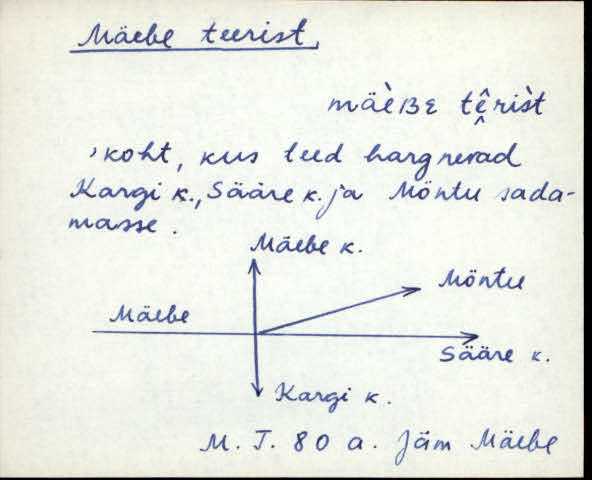 Mäebe teerist,
mäèBE tê̬rìst
, koht, kus teed hargnevad
Kargi k., Sääre k. ja Möntu sada-
masse.
Mäebe k.
Möntu
Mäebe
Sääre k.
Kargi k.
M. T. 80 a. Jäm Mäebe